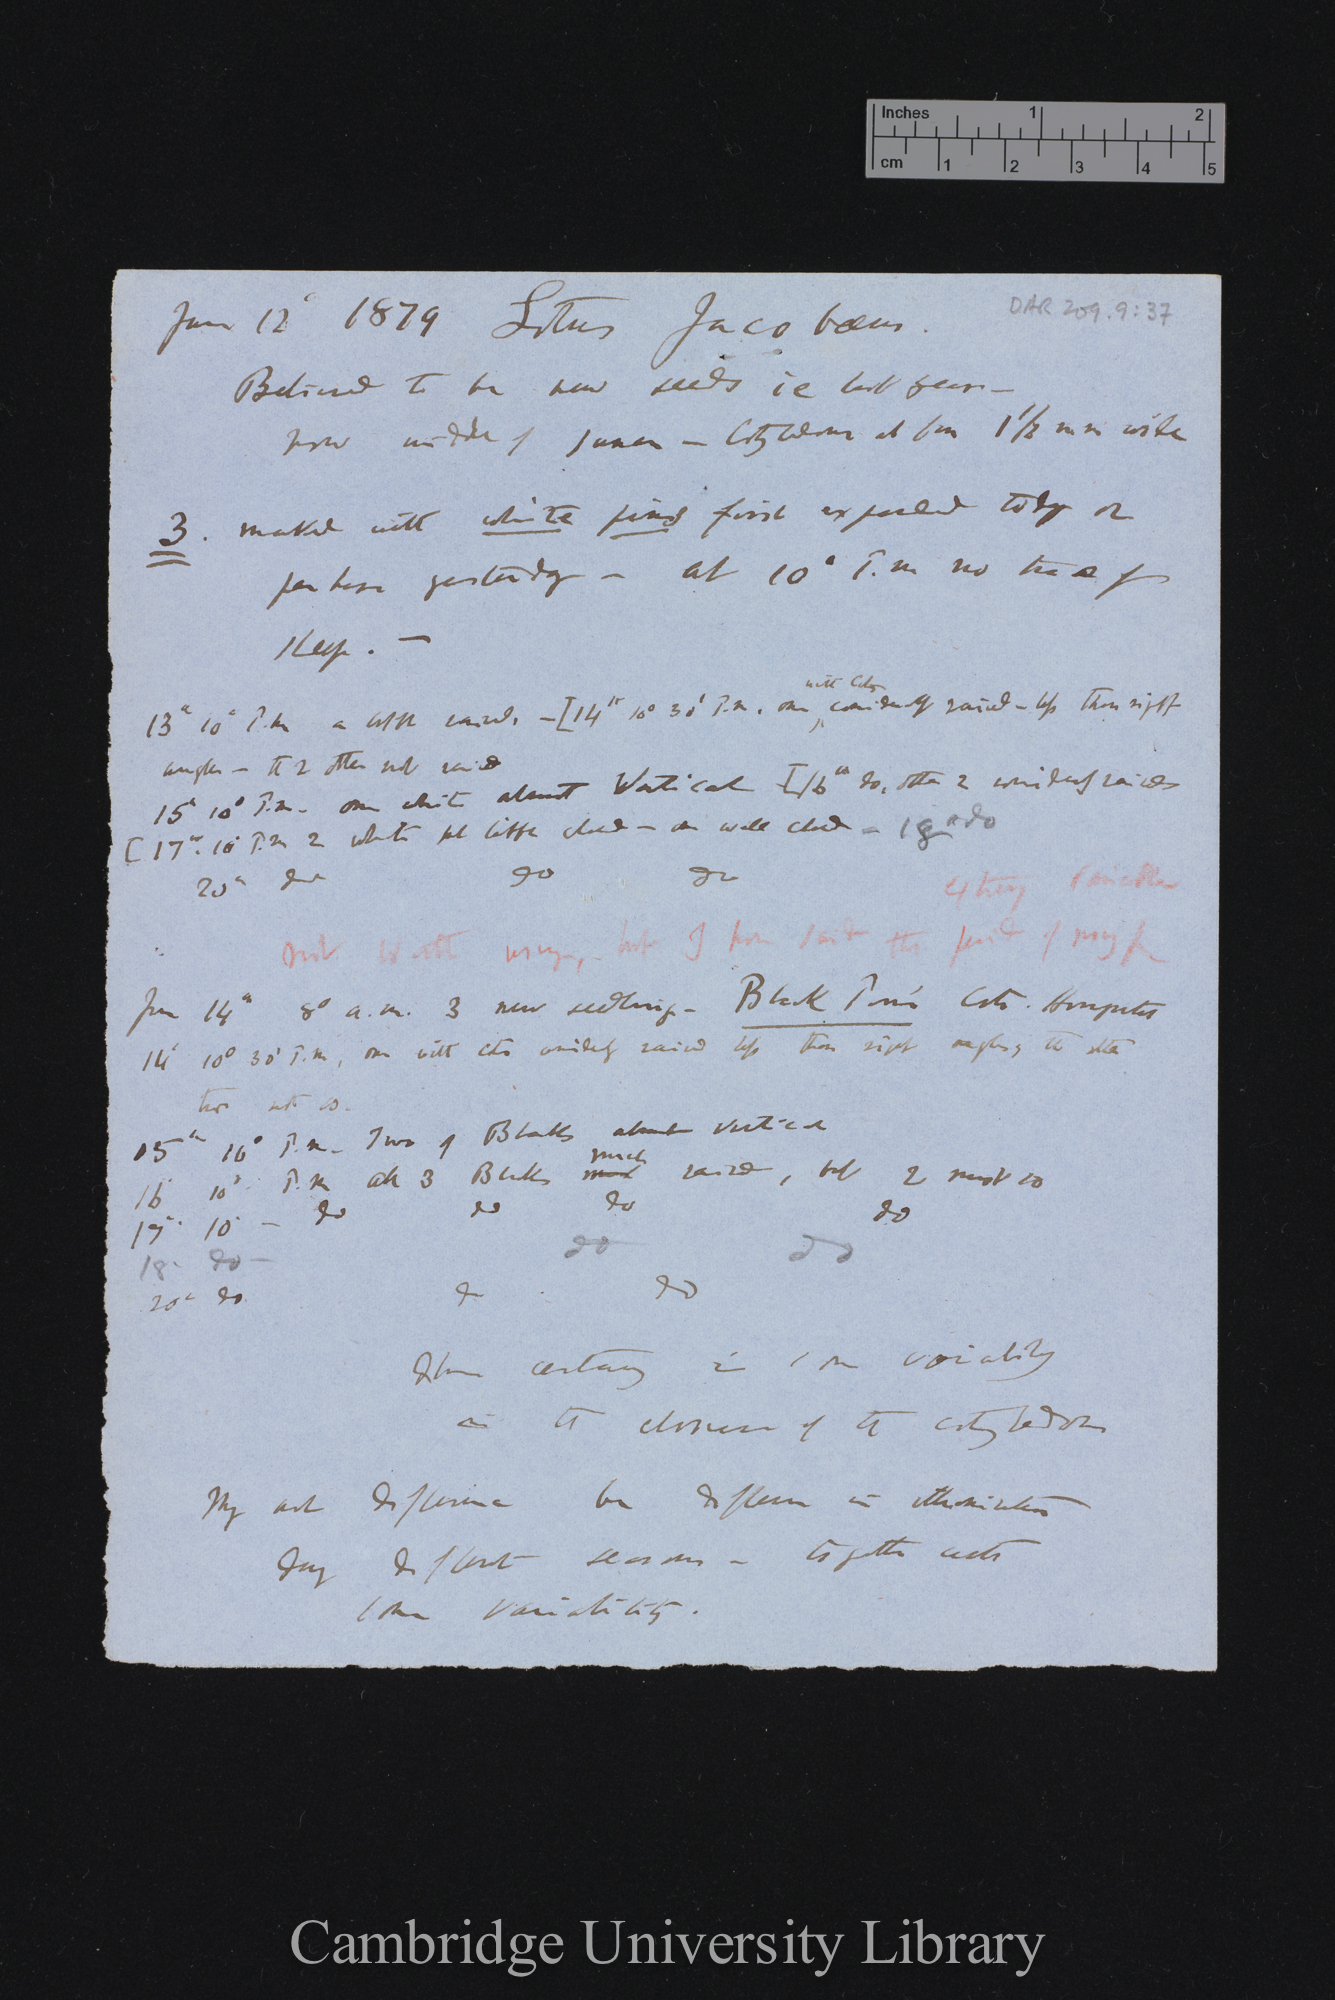 Inches 1 2
cm 1 2 3 4 5
DAR 209.9:37
June 12 1879 Lotus Jacobæus.
Believed to be new seeds ie last years —
now middle of — Cotyledons at base 1 1/3 mm wide
3. marked with white pins first expanded today or
perhaps yesterday — at 10° P.m no trace of
sleep. —
13th 10° P.m a little raised. — [14th 10° 30' P.m. one with Cots considerably raised — less than right
angles — the 2 other not raised
15th 10° P.m. one white almost Vertical [16th do, other 2 considerably raised
[17th. 10° P.m 2 white but little closed — one well closed — 18th do
20th do do do
not worth using, but I from the period of
June 14th 8° a.m. 3 new seedlings — Black Pins Cots.
14th 10° 30' P.m, one with cots considerably raised less than right angles; the other
two not so.
15th 10° P.m. Two of Blacks almost vertical
16th 10° P.m all 3 Blacks much raised, but 2 most so
17th. 10° — do do do do
18. do — do do
20th do. do do
There certainly is some variability
in the closure of the cotyledons
May not difference be difference in illumination
during different seasons — together with
some variability.
Cambridge University Library